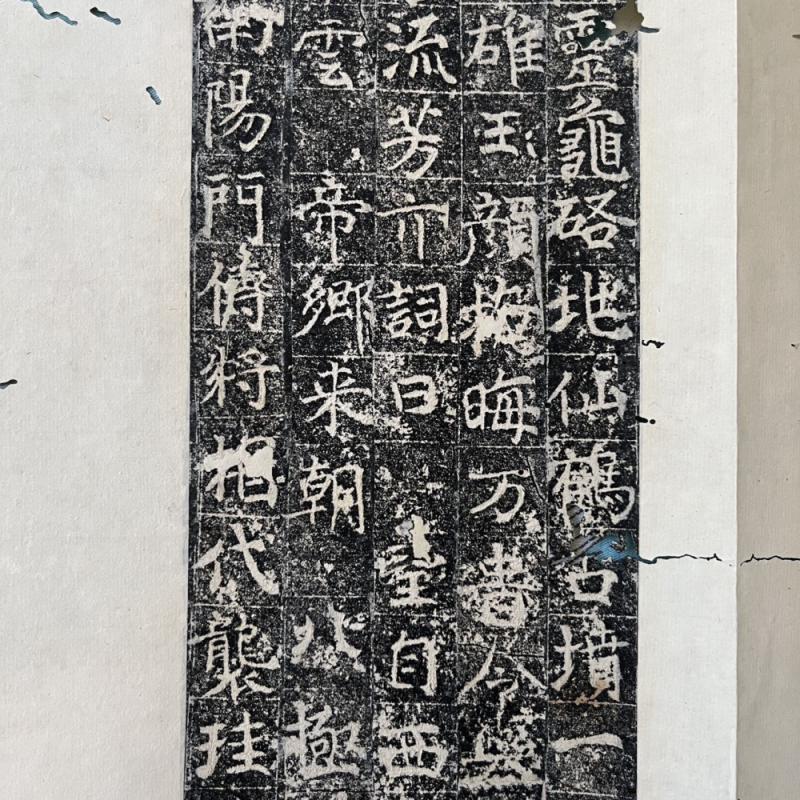 靈龜硌地仙鶴占墳一
雄玉顏掩晦万書今與
流芳亦詞曰望自西
雲帝鄉来朝北極
南陽門傳將相代襲珪